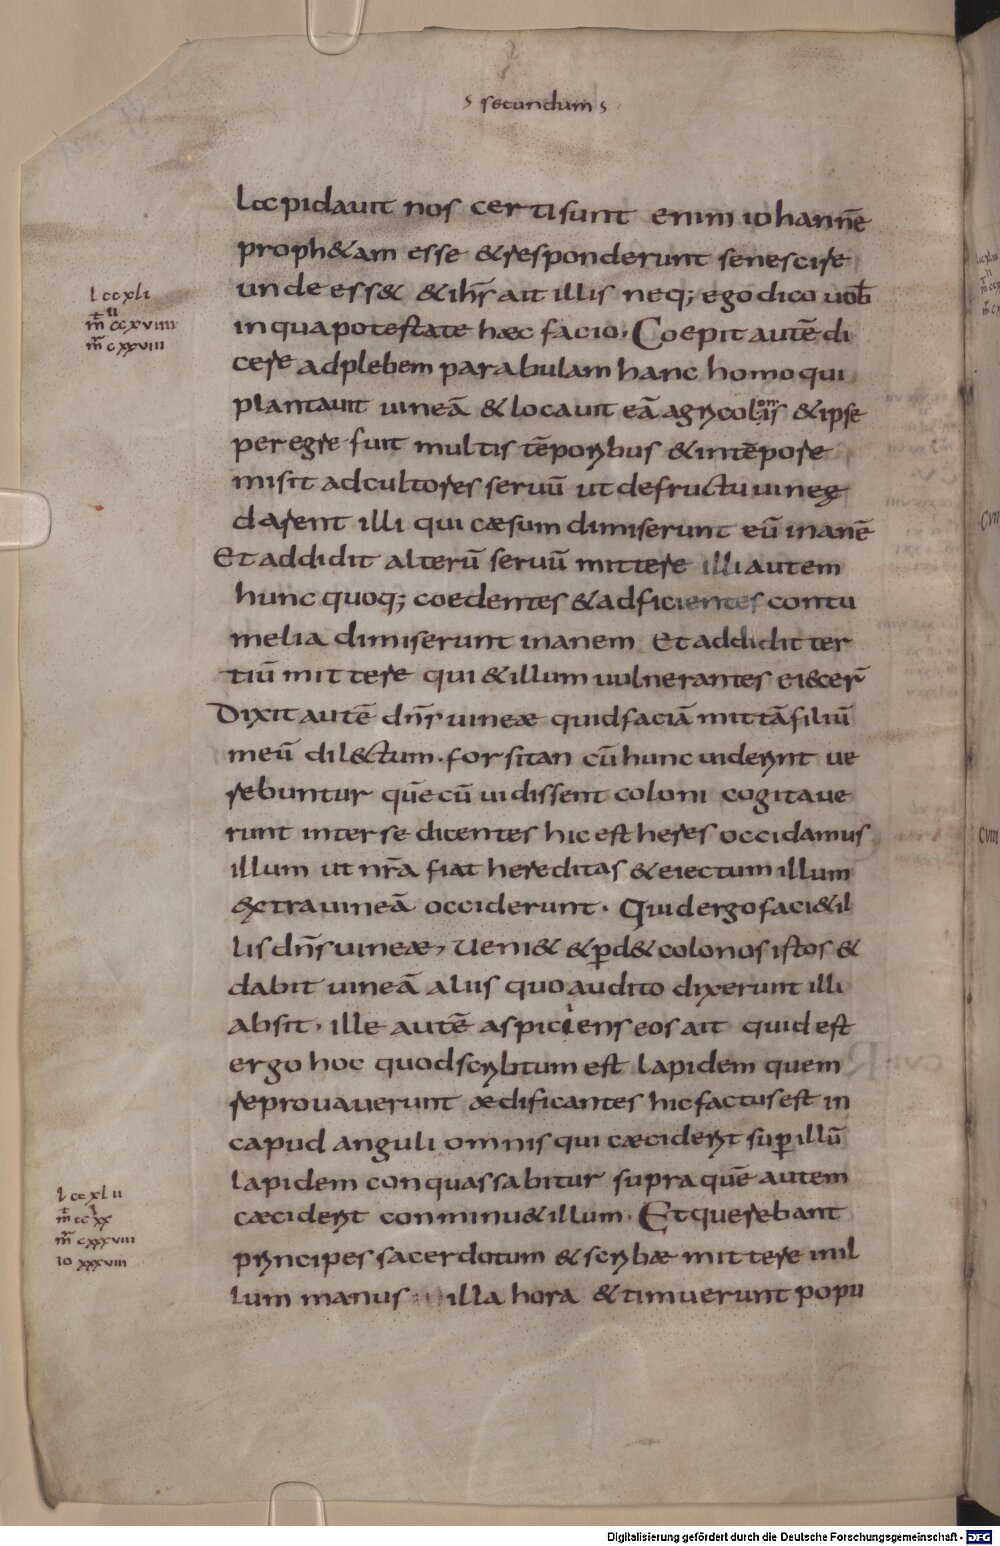 secundum
Lapidauit nos certi sunt enim iohannē
proph&am esse & responderunt se nescire
unde ess& & ihs̄ ait illis neq; ego dico uob̄
in qua potestate hæc facio. Coepit autē di
cere ad plebem parabulam hanc homo qui
plantauit uineā & locauit eā agricolis & ipse
peregre fuit multis tēporibus & in tēpore
misit ad cultores seruū ut de fructu uineę
darent illi qui cæsum dimiserunt eū inanē
Et addidit alterū seruū mittere illi autem
hunc quoq; coedentes & adficientes contu
melia dimiserunt inanem Et addidit ter
tiū mittere qui & illum uulnerantes eiecer̄
Dixit autē dn̄s uineæ quid faciā mittā filiū
meū dilectum. forsitan cū hunc uiderint ue
rebuntur quē cū uidissent coloni cogitaue
runt inter se dicentes hic est heres occidamus
illum ut nr̄a fiat hereditas & eiectum illum
extra uineā occiderunt. Quid ergo faci& il
lis dn̄s uineæ, Ueni& & p̱d& colonos istos &
dabit uineā aliis quo audito dixerunt illi
absit. ille autē aspiciens eos ait quid est
ergo hoc quod scribtum est lapidem quem
reprouauerunt ædificantes hic factus est in
capud anguli omnis qui cæciderit sup̱ illū
lapidem conquassabitur supra quē autem
cæciderit conminu& illum. Et querebant
principes sacerdotum & scribæ mittere in il
lum manus illa hora & timuerunt popu
l ccxli
m̄ ccxviiii
m̄ cxxviii
l ccxlii
m̄ ccxx
m̄ cxxxviii
io xxxviii
Digitalisierung gefördert durch die Deutsche Forschungsgemeinschaft - DFG